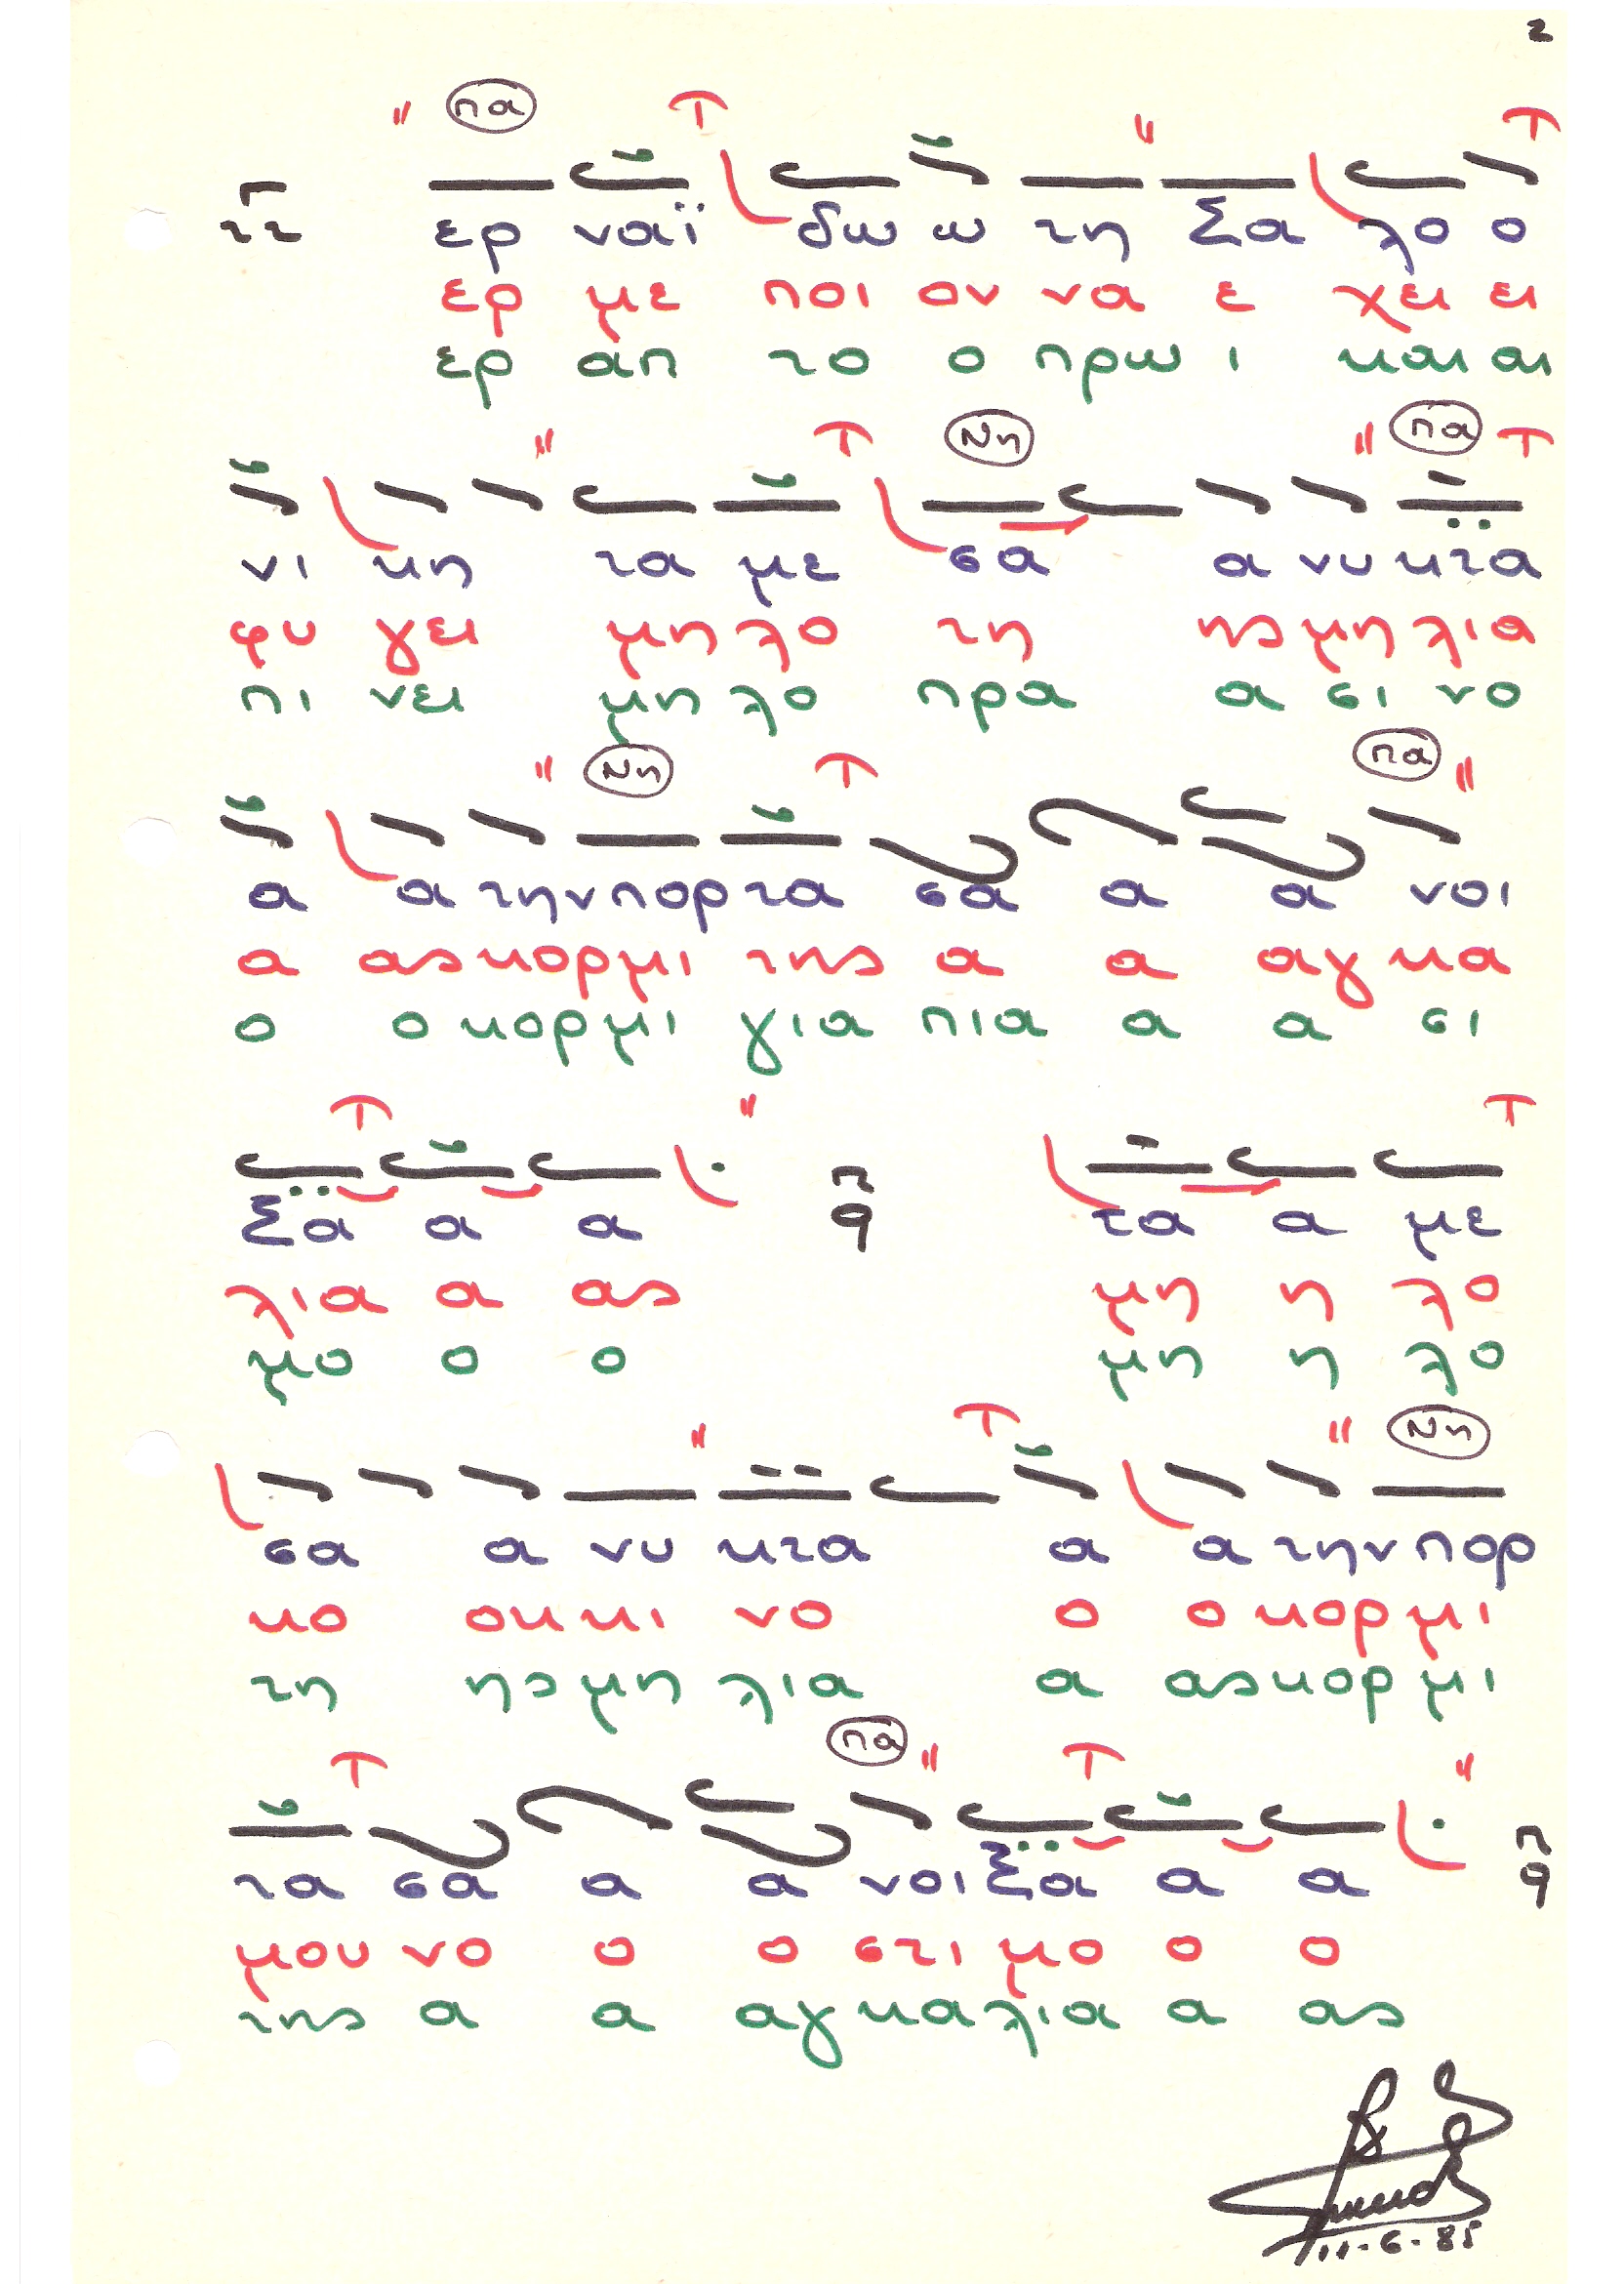 2
πα
ερ ναϊ δω ω τη Σα λο ο
ερ με ποι ον να ε χει ει
ερ απ το ο πρω ι και αι
Νη πα
νι κη τα με σα α νυ κτα
φυ γει μη λο τη ης μη λια
πι νει μη λο πρα α σι νο
Νη πα
α α την πορ τα σα α α νοι
α ας κορ μι της α α αγ κα
ο ο κορ μι για πια α α σι
ξα α α τα α με
λια α ας μη η λο
μο ο ο μη η λο
Νη
σα α νυ κτα α α την πορ
κο οκ κι νο ο ο κορ μι
τη ης μη λια α ας κορ μι
πα
τα σα α α νοι ξα α α
μου νο ο ο στι μο ο ο
της α α αγ κα λια α ας
11-6-85